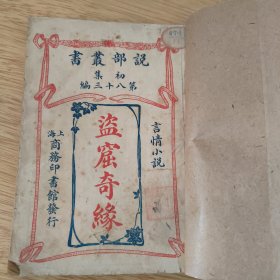 説部叢書
初集
第八十三編
言情小說
盜窟奇緣
上海商務印書館發行